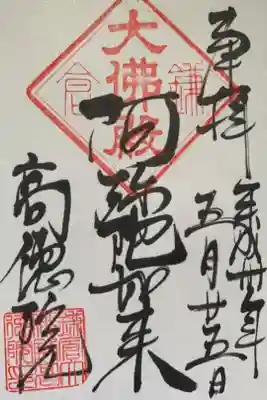 奉拝
平成卅年
五月廿五日
大佛殿
鎌倉
阿弥陀如来
高徳院